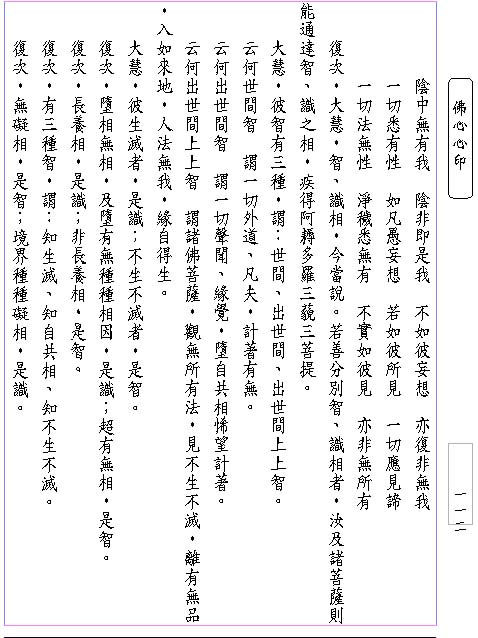 佛心心印
一一二
陰中無有我　陰非即是我　不如彼妄想　亦復非無我
一切悉有性　如凡愚妄想　若如彼所見　一切應見諦
一切法無性　淨穢悉無有　不實如彼見　亦非無所有
復次，大慧，智、識相，今當說。若善分別智、識相者，汝及諸菩薩則
能通達智、識之相，疾得阿耨多羅三藐三菩提。
大慧，彼智有三種，謂：世間、出世間、出世間上上智。
云何世間智　謂一切外道、凡夫，計著有無。
云何出世間智　謂一切聲聞、緣覺，墮自共相悕望計著。
云何出世間上上智　謂諸佛菩薩，觀無所有法，見不生不滅，離有無品
，入如來地，人法無我，緣自得生。
大慧，彼生滅者，是識；不生不滅者，是智。
復次，墮相無相，及墮有無種種相因，是識；超有無相，是智。
復次，長養相，是識；非長養相，是智。
復次，有三種智，謂：知生滅、知自共相、知不生不滅。
復次，無礙相，是智；境界種種礙相，是識。